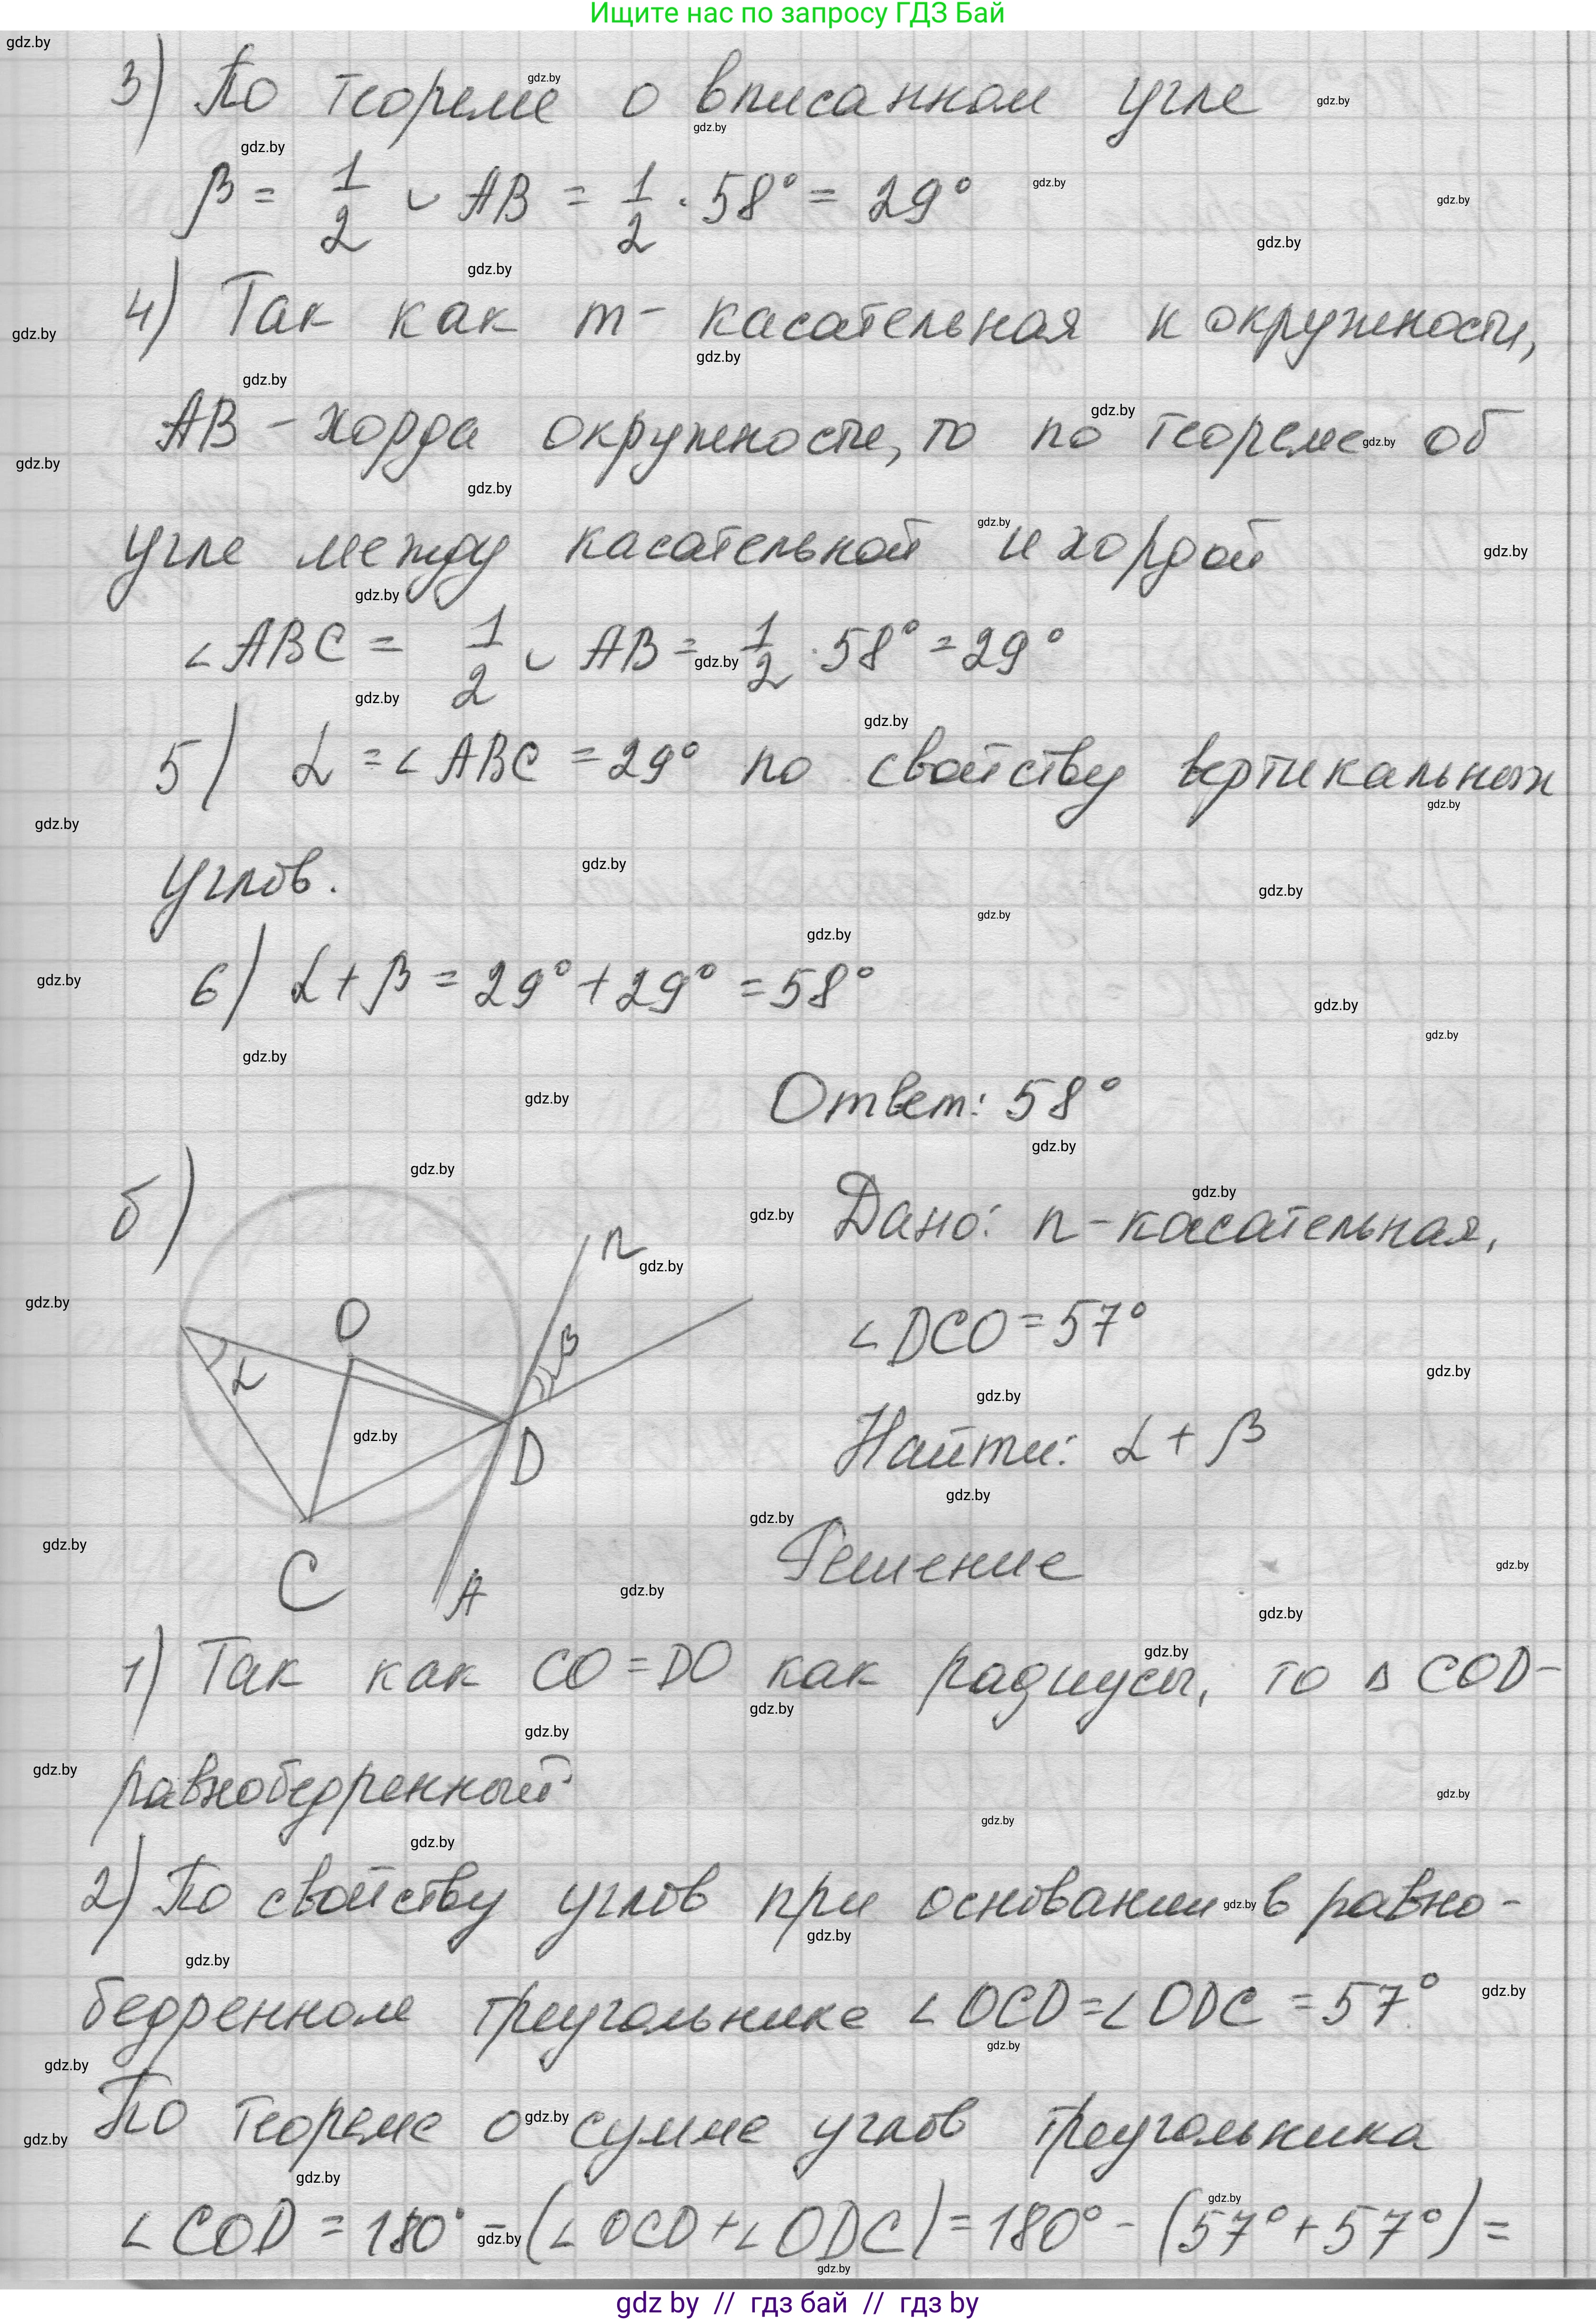 Ищите нас по запросу ГДЗ Бай
3) По теореме о вписанном угле
β = 1/2 ◡ AB = 1/2 · 58° = 29°
4) Так как m - касательная к окружности,
AB - хорда окружности, то по теореме об
угле между касательной и хордой
∠ABC = 1/2 ◡ AB = 1/2 · 58° = 29°
5) α = ∠ABC = 29° по свойству вертикальных
углов.
6) α + β = 29° + 29° = 58°
Ответ: 58°
б)
n
O
β
α
D
C
A
Дано: n - касательная,
∠DCO = 57°
Найти: α + β
Решение
1) Так как CO = DO как радиусы, то △COD -
равнобедренный
2) По свойству углов при основании в равно-
бедренном треугольнике ∠OCD = ∠ODC = 57°.
По теореме о сумме углов треугольника
∠COD = 180° - (∠OCD + ∠ODC) = 180° - (57° + 57°) =
gdz by // гдз бай // гдз by